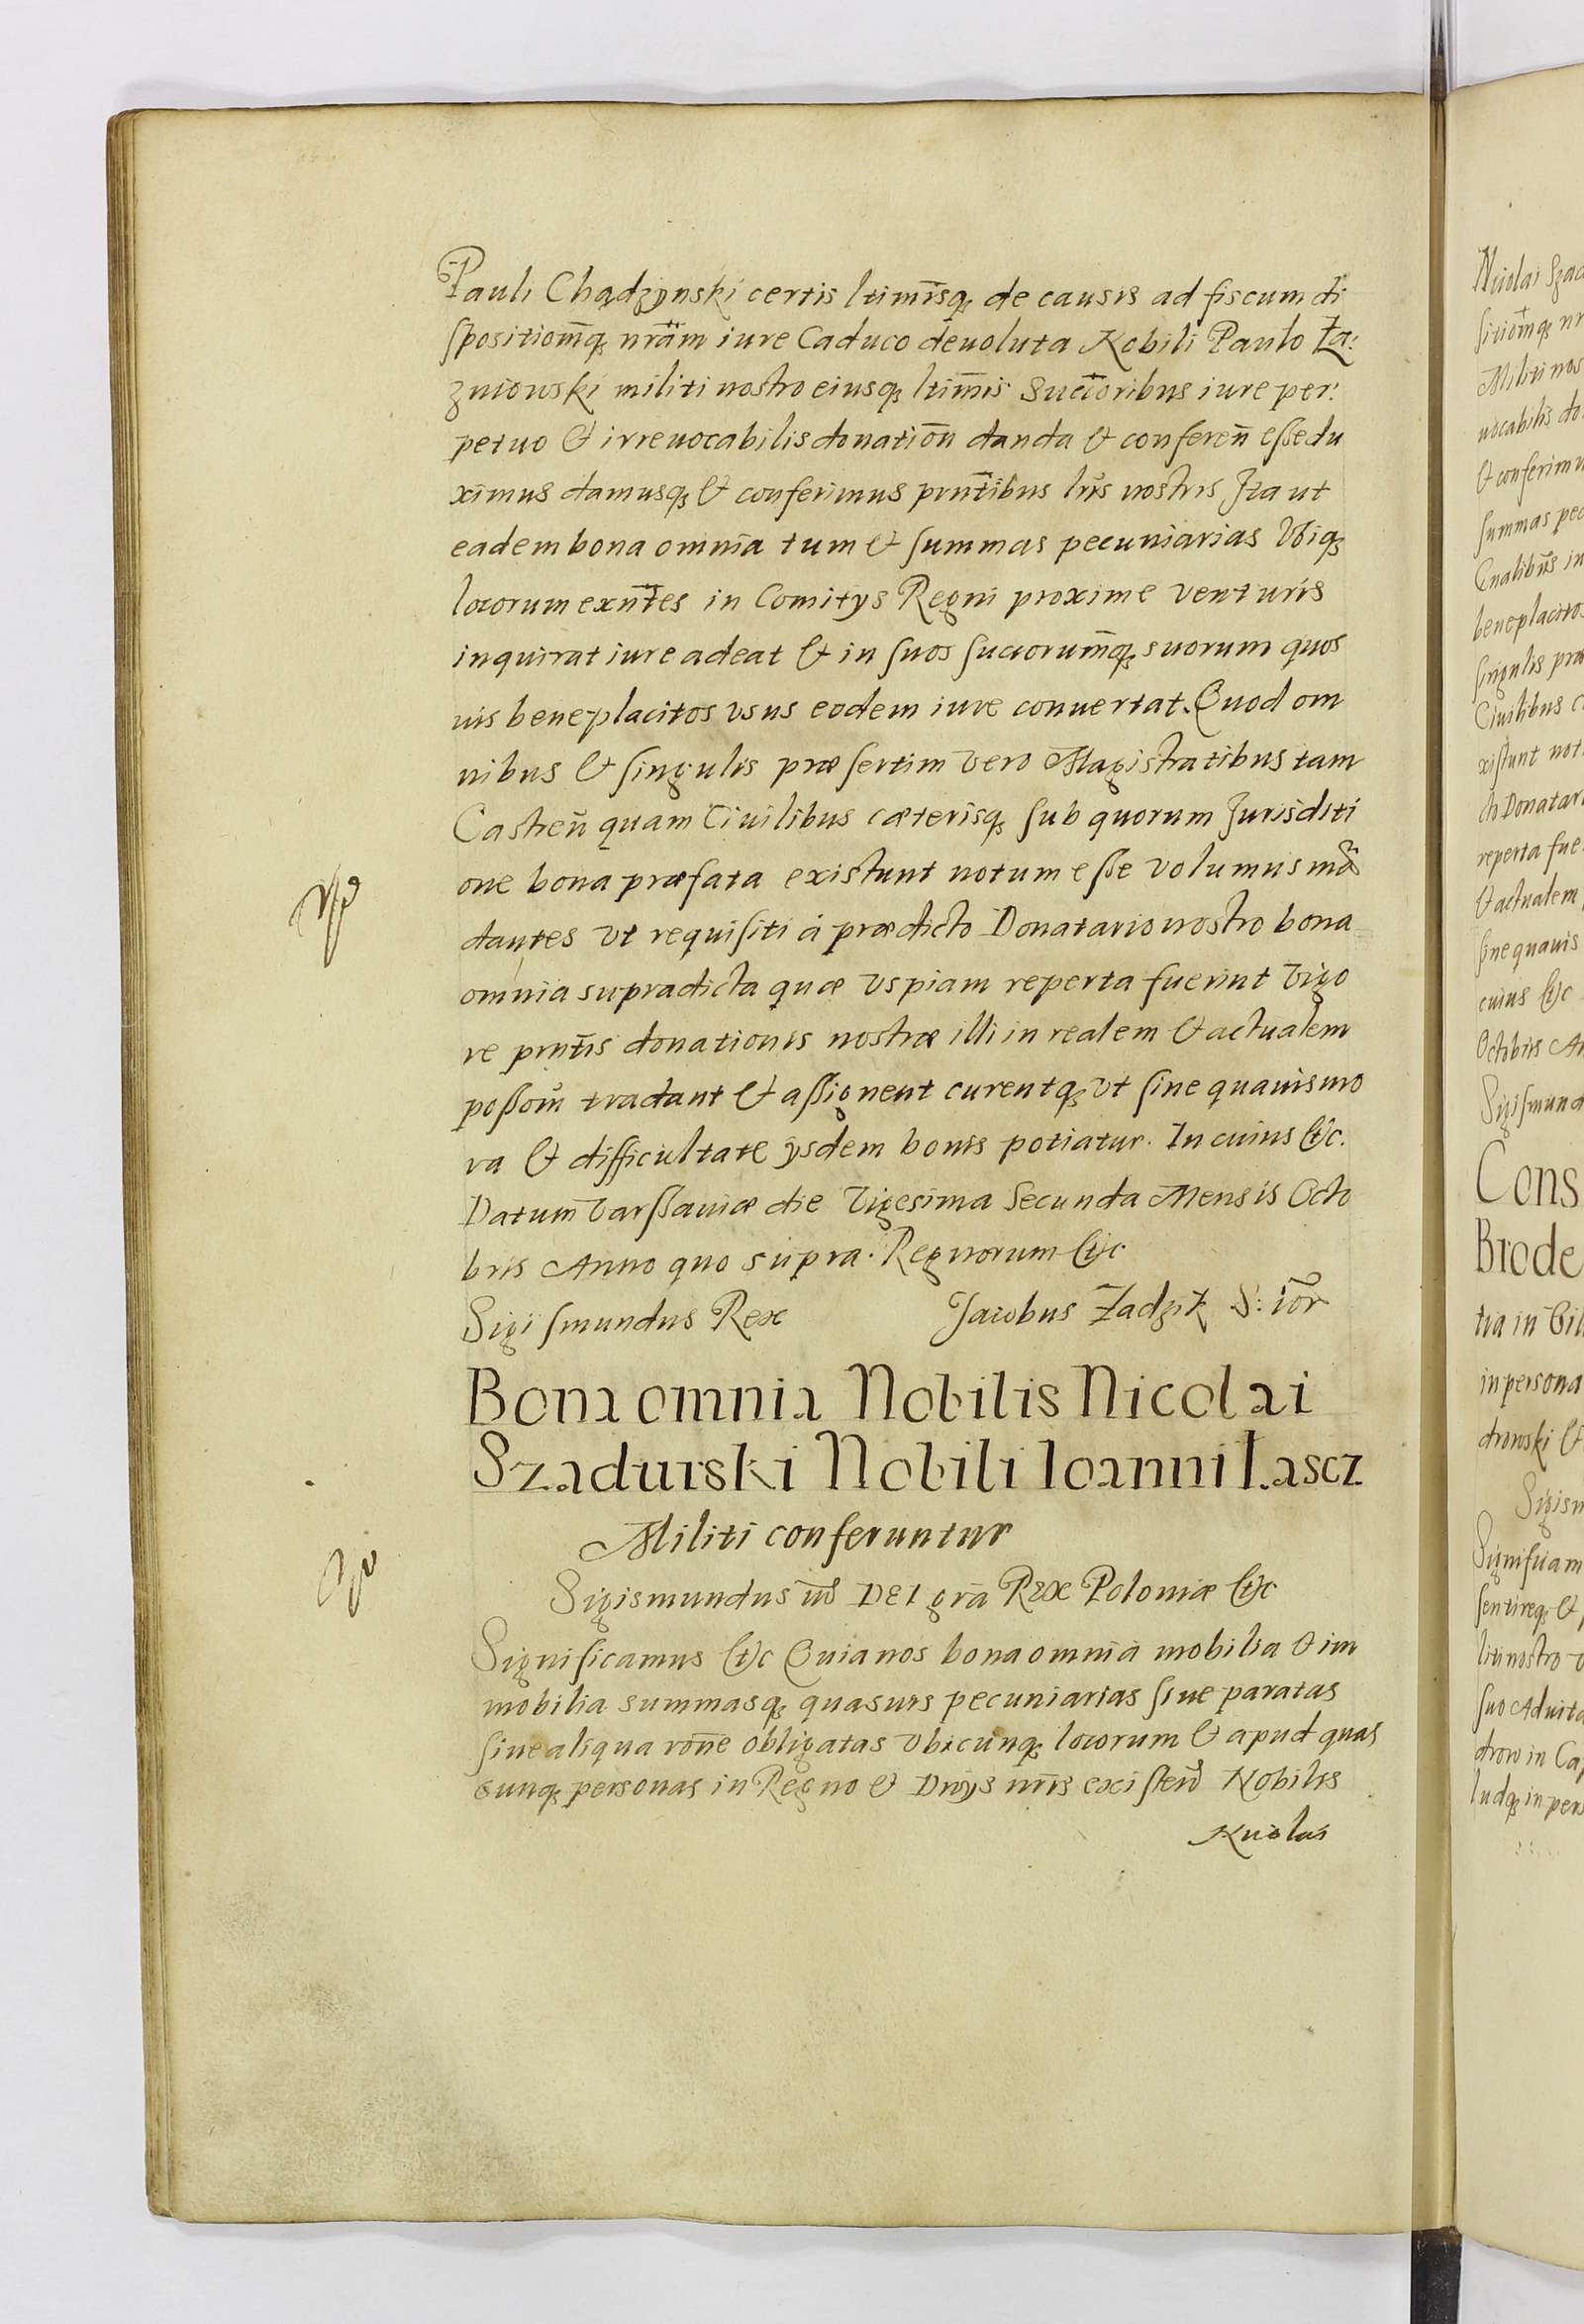 Pauli Chądzynski certis ltimisq; de causis ad fiscum di
spositionq; nram iure Caduco deuoluta Nobili Paulo Ła:
zniowski militi nostro eiusq; ltimis Succoribus iure per:
petuo & irreuocabilis donation danda & conferen esse du
ximus damusq; & conferimus pntibus lris nostris Ita ut
eadem bona omnia tum & summas pecuniarias Vbiq;
locorum exntes in Comitys Regni proxime venturis
inquirat iure adeat & in suos succorumq; suorum quos
uis beneplacitos vsus eodem iure conuertat. Quod om
nibus & singulis præsertim vero Magistratibus tam
Castren quam Ciuilibus cæterisq; sub quorum Jurisditi
one bona præfata existunt notum esse volumus mã
dantes vt requisiti à prædicto Donatario nostro bona
omnia supradicta quæ vspiam reperta fuerint vigo
re pntis donationis nostræ illi in realem & actualem
possom tradant & assignent curentq; vt sine quauis mo
ra & difficultate ysdem bonis potiatur. In cuius &c.
Datum varssauiæ die Vigesima Secunda Mensis Octo
bris Anno quo supra. Regnorum &c.
Sigismundus Rex Jacobus Zadzik S:
Bona omnia Nobilis Nicolai
Szadurski Nobili Ioanni Lascz
Militi conferuntur
Sigismundus DEI gra Rex Poloniæ &c
Significamus &c Quia nos bona omnia mobilia & im
mobilia summasq; quasuis pecuniarias siue paratas
siue aliqua rone obligatas vbicunq; locorum & apud quas
cunq; personas in Regno & Dnys nris existen Nobilis
Nicolai
Nicolai
Militi nos
uocabilis do
& conferimu
summas pec
beneplacitos
singulis præ
Ciuilibus
xistunt not
reperta fue
& actualem
sine quauis
cuius &c
Sigismund
Cons
Brode
tia in
in persona
drowski &
Sigism
Significam
drow in